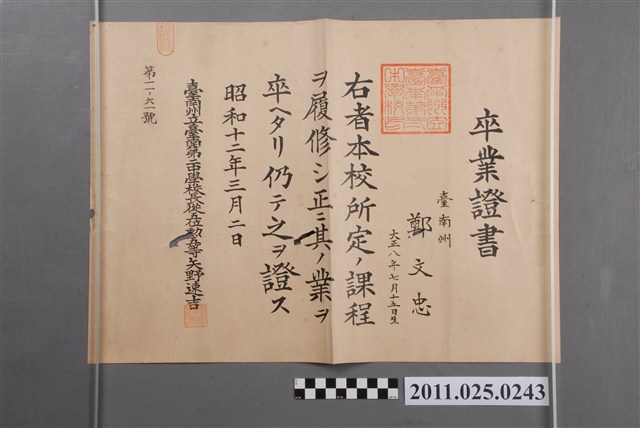 卒業證書
臺南州
鄭文忠
大正八年七月十五日生
右者本校所定ノ課程
ヲ履修シ正ニ其ノ業ヲ
卒ヘタリ仍テ之ヲ證ス
昭和十二年三月二日
臺南州立臺南第二中學校長從五位勲五等矢野速吉
第一一・六一號
2011.025.0243